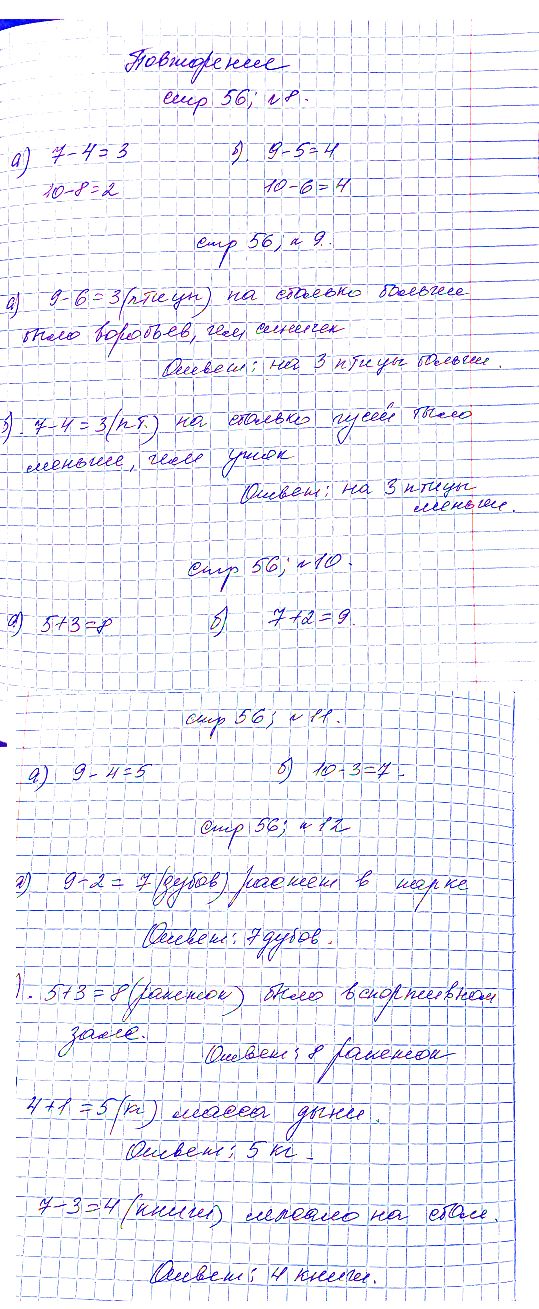 Повторение
стр 56; №8.
а) 7-4=3 б) 9-5=4
10-8=2 10-6=4
стр 56; №9.
а) 9-6=3(птицы) на столько больше
было воробьев, чем синичек
Ответ: на 3 птицы больше.
б). 7-4=3(пт.) на столько гусей было
меньше, чем уток
Ответ: на 3 птицы
меньше.
стр 56; №10.
а) 5+3=8 б) 7+2=9.
стр 56; №11.
а) 9-4=5 б) 10-3=7.
стр 56; №12
а) 9-2=7(дубов) растет в парке
Ответ: 7 дубов.
). 5+3=8(ракеток) было в спортивном
зале.
Ответ: 8 ракеток
4+1=5(кг) масса дыни.
Ответ: 5 кг.
7-3=4(книги) лежало на столе.
Ответ: 4 книги.